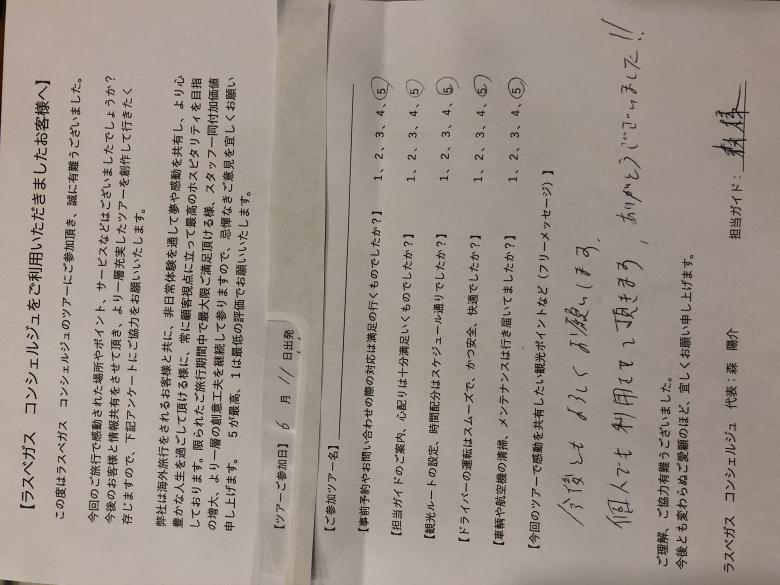 【ラスベガス　コンシェルジュをご利用いただきましたお客様へ】
この度はラスベガス　コンシェルジュのツアーにご参加頂き、誠に有難うございました。
今回のご旅行で感動された場所やポイント、サービスなどはございましたでしょうか？
今後のお客様と情報共有をさせて頂き、より一層充実したツアーを創作して行きたく
存じますので、下記アンケートにご協力をお願いいたします。
弊社は海外旅行をされるお客様と共に、非日常体験を通して夢や感動を共有し、より心
豊かな人生を過ごして頂ける様に、常に顧客視点に立って最高のホスピタリティを目指
しております。限られたご旅行期間中で最大限ご満足頂ける様、スタッフ一同付加価値
の増大、より一層の創意工夫を継続して参りますので、忌憚なきご意見を宜しくお願い
申し上げます。　５が最高、１は最低の評価でお願いいたします。
【ツアーご参加日】　6　月　11　日出発
【ご参加ツアー名】
【事前予約やお問い合わせの際の対応は満足の行くものでしたか？】　1、2、3、4、5
【担当ガイドのご案内、心配りは十分満足いくものでしたか？】　1、2、3、4、5
【観光ルートの設定、時間配分はスケジュール通りでしたか？】　1、2、3、4、5
【ドライバーの運転はスムーズで、かつ安全、快適でしたか？】　1、2、3、4、5
【車輌や航空機の清掃、メンテナンスは行き届いてましたか？】　1、2、3、4、5
【今回のツアーで感動を共有したい観光ポイントなど（フリーメッセージ）】
今後ともよろしくお願いします。
個人でも利用させて頂きます、ありがとうございました!!
ご理解、ご協力有難うございました。
今後とも変わらぬご愛顧のほど、宜しくお願い申し上げます。
ラスベガス　コンシェルジュ　代表：森　陽介　担当ガイド：